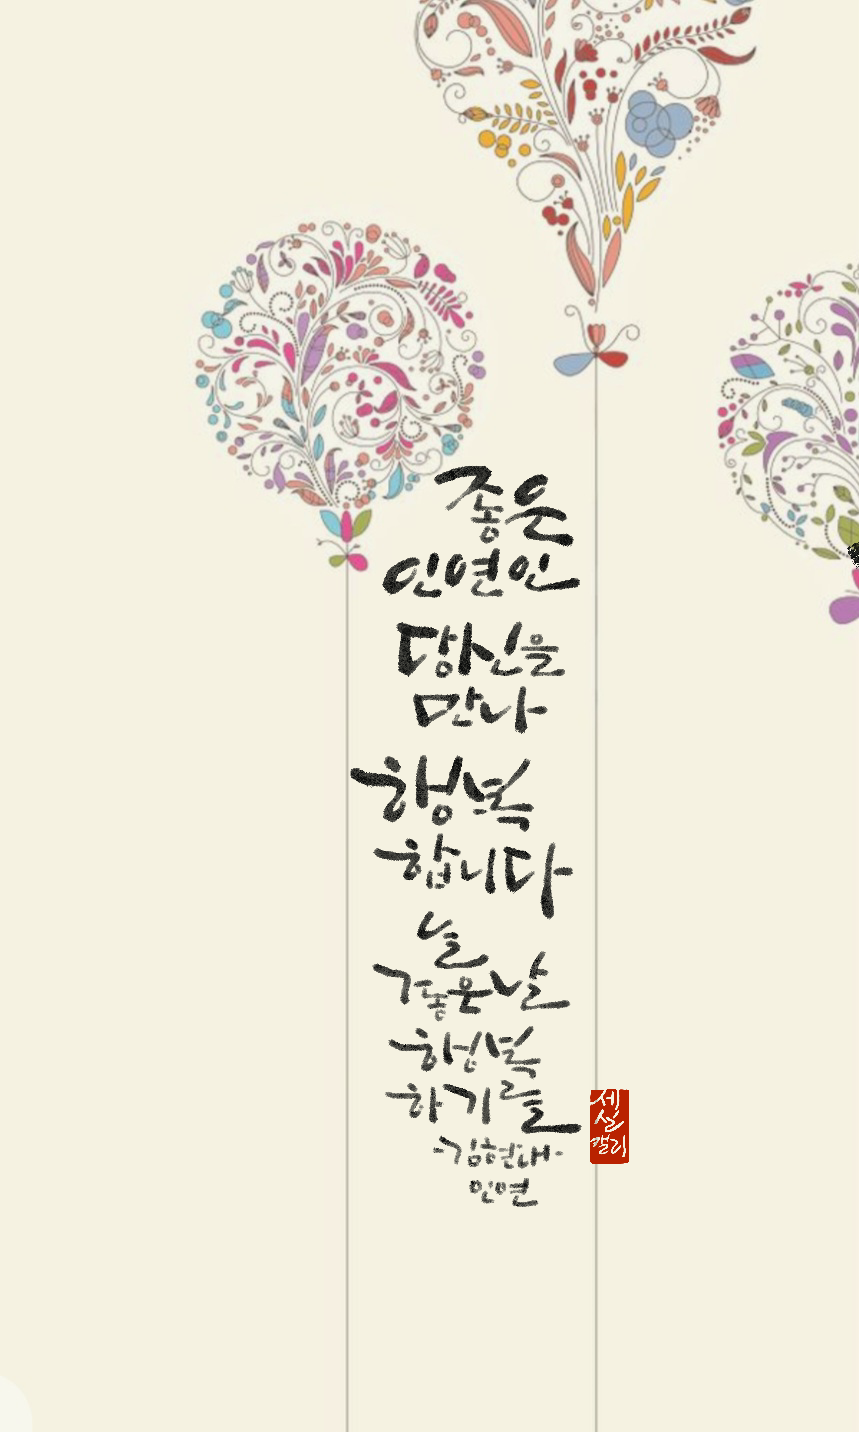 좋은
인연인
당신을
만나
행복
합니다
늘
좋은날
행복
하기를
-김현내-
인연
세실
캘리